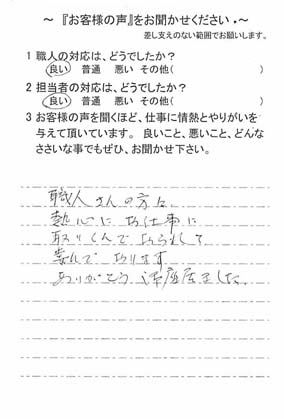 ～『お客様の声』をお聞かせください・～
差し支えのない範囲でお願いします。
1 職人の対応は、どうでしたか？
良い 普通 悪い その他( )
2 担当者の対応は、どうでしたか？
良い 普通 悪い その他( )
3 お客様の声を聞くほど、仕事に情熱とやりがいを
与えて頂いています。 良いこと、悪いこと、どんな
ささいな事でもぜひ、お聞かせ下さい。
職人さんの方は
熱心にお仕事に
取りくんでおられて
ております
ありがとう御座居ました。